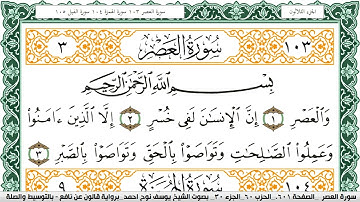 الجزء الثلاثون سورة العصر ١٠٣ سورة الهمزة ١٠٤ سورة الفيل ١٠٥
١٠٣ سُورَةُ الْعَصْرِ ٣
بِسْمِ اللَّهِ الرَّحْمَٰنِ الرَّحِيمِ
وَالْعَصْرِ ١ إِنَّ الْإِنسَٰنَ لَفِى خُسْرٍ ٢ إِلَّا الَّذِينَ ءَامَنُواْ
وَعَمِلُواْ الصَّٰلِحَٰتِ وَتَوَاصَوْاْ بِالْحَقِّ وَتَوَاصَوْاْ بِالصَّبْرِ ٣
١٠٤ سُورَةُ الْهُمَزَةِ ٩
سورة العصر . الصفحة ٦٠١ . الحزب ٦٠ . الجزء ٣٠ . بصوت الشيخ يوسف نوح احمد . برواية قالون عن نافع . بالتوسيط والصلة